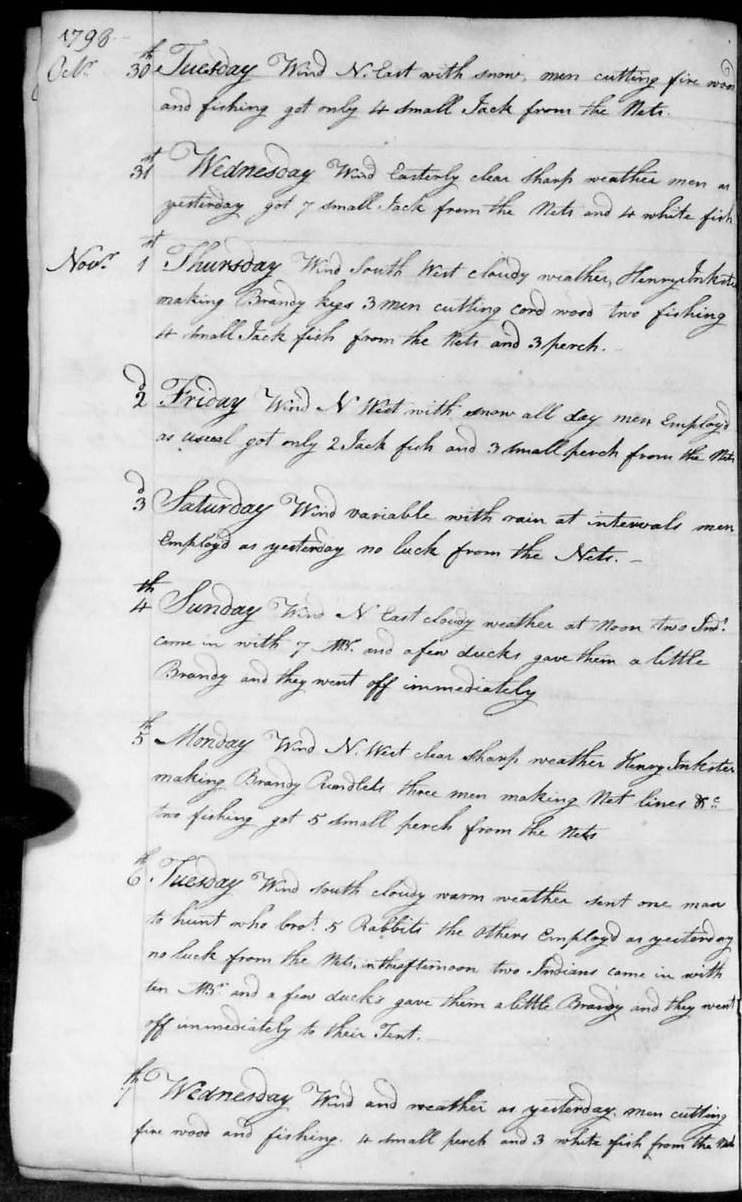 1798
Octr. 30th Tuesday Wind N. East with snow, men cutting fire wood
and fishing got only 4 small Jack from the Nets.
31st Wednesday Wind Easterly clear sharp weather men as
yesterday got 7 small Jack from the Nets and 4 white fish
Novr. 1st Thursday Wind South West cloudy weather, Henry Inkster
making Brandy kegs 3 men cutting cord wood two fishing
4 small Jack fish from the Nets and 3 perch.
2d Friday Wind N West with snow all day men Employd
as usual got only 2 Jack fish and 3 small perch from the Nets
3d Saturday Wind variable with rain at intervals men
Employd as yesterday no luck from the Nets. -
4th Sunday Wind N East cloudy weather at Noon two Inds.
came in with 7 MBr. and a few ducks gave them a little
Brandy and they went off immediately
5th Monday Wind N. West clear sharp weather Henry Inkster
making Brandy Rundlets three men making Net lines &c
two fishing got 5 small perch from the Nets
6th Tuesday Wind South cloudy warm weather sent one man
to hunt who brot. 5 Rabbits the Others Employd as yesterday
no luck from the Nets, in the afternoon two Indians came in with
ten MBr. and a few ducks gave them a little Brandy and they went
off immediately to their Tent.
7th Wednesday Wind and weather as yesterday men cutting
fire wood and fishing. 4 small perch and 3 white fish from the Nets